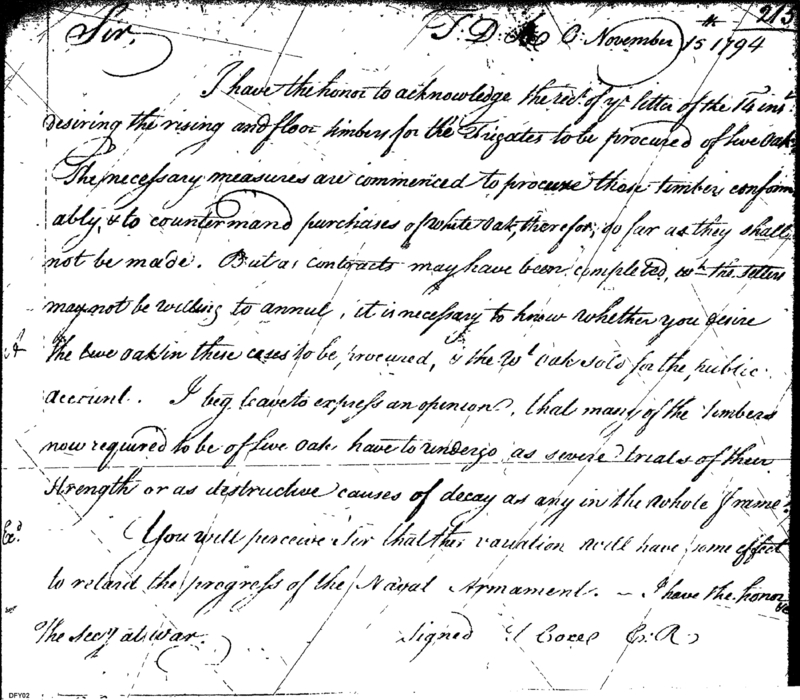 215
Sir, T. D. R. O. November 15th 1794
I have the honor to acknowledge the rect. of yr. letter of the 14 inst.
desiring the rising and floor timbers for the Frigates to be procured of live Oak.
The necessary measures are commenced to procure those timbers conform
ably, & to countermand purchases of white Oak, therefor, so far as they shall
not be made. But as contracts may have been completed, wh. the sellers
may not be willing to annul, it is necessary to know whether you desire
the live oak in these cases to be procured, & the Wt. oak sold for the public
account. I beg leave to express an opinion, that many of the timbers
now required to be of live Oak have to undergo as severe trials of their
strength or as destructive causes of decay as any in the whole frame.
Exd.
You will perceive Sir that this variation will have some effect
to retard the progress of the Naval Armament. — I have the honor &c
The Secy at war. Signed T Coxe C. R.
DFY02